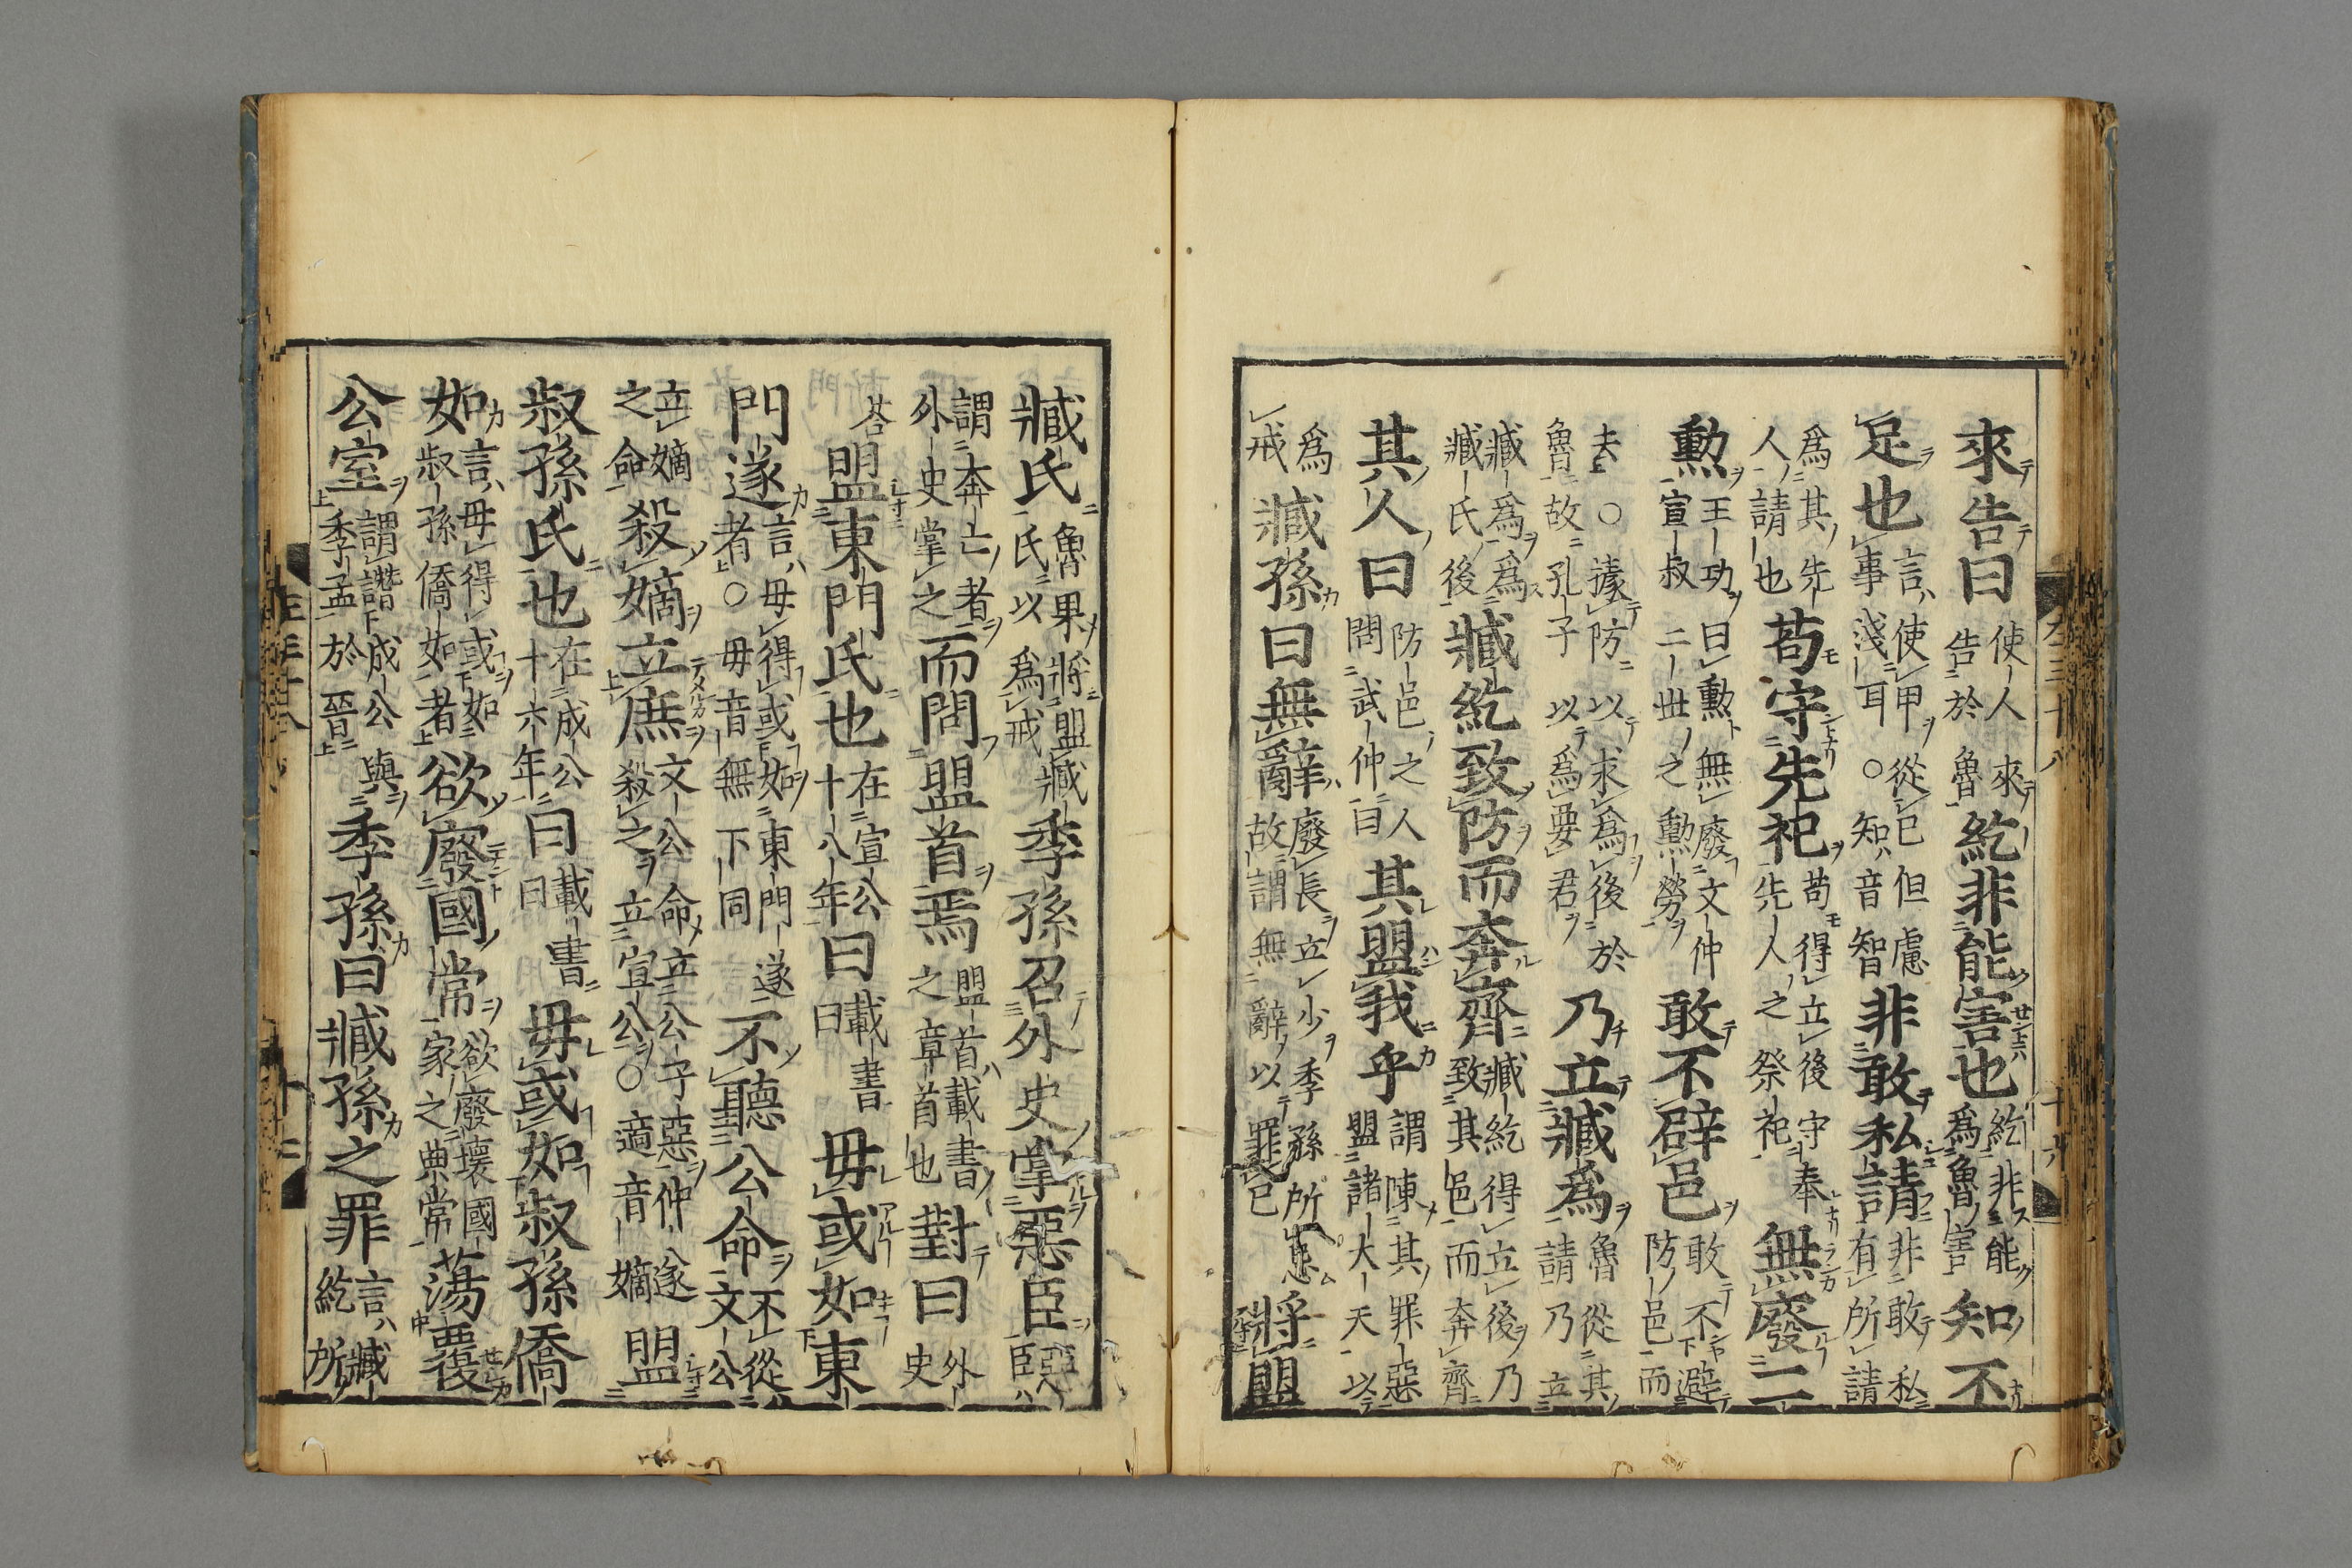 來告曰使人來告於魯紇非能害也紇非能爲魯害知不
足也言使甲從已但慮事淺耳○知音智非敢私請非敢私有所請
爲其先人請也苟守先祀苟得立後守奉先人之祭祀無廢二
勳王功曰勳無廢文仲宣叔二世之勳勞敢不辟邑敢不避防邑而
去○據防以求爲後於魯故孔子以爲要君乃立臧爲魯從其請乃立
臧爲爲臧氏後臧紇致防而奔齊臧紇得立後乃致其邑而奔齊
其人曰防邑之人問武仲曰其盟我乎謂陳其罪惡盟諸大夫以
爲戒臧孫曰無辭廢長立少季孫所忌故謂無辭以罪已將盟
臧氏魯果將盟臧氏以爲戒季孫召外史掌惡臣惡臣
謂奔亡者外史掌之而問盟首焉盟首載書之章首也對曰外史
荅盟東門氏也在宣公十八年曰載書曰毋或如東
門遂言毋得或如東門遂者○毋音無下同不聽公命不從文公
立嫡之命殺嫡立庶文公命立公子惡仲遂殺之立宣公○適音嫡盟
叔孫氏也在成公十六年曰載書曰毋或如叔孫僑
如言毋得或如叔孫僑如者欲廢國常欲廢壞國家之典常蕩覆
公室謂譖成公與季孟於晉季孫曰臧孫之罪言臧紇所